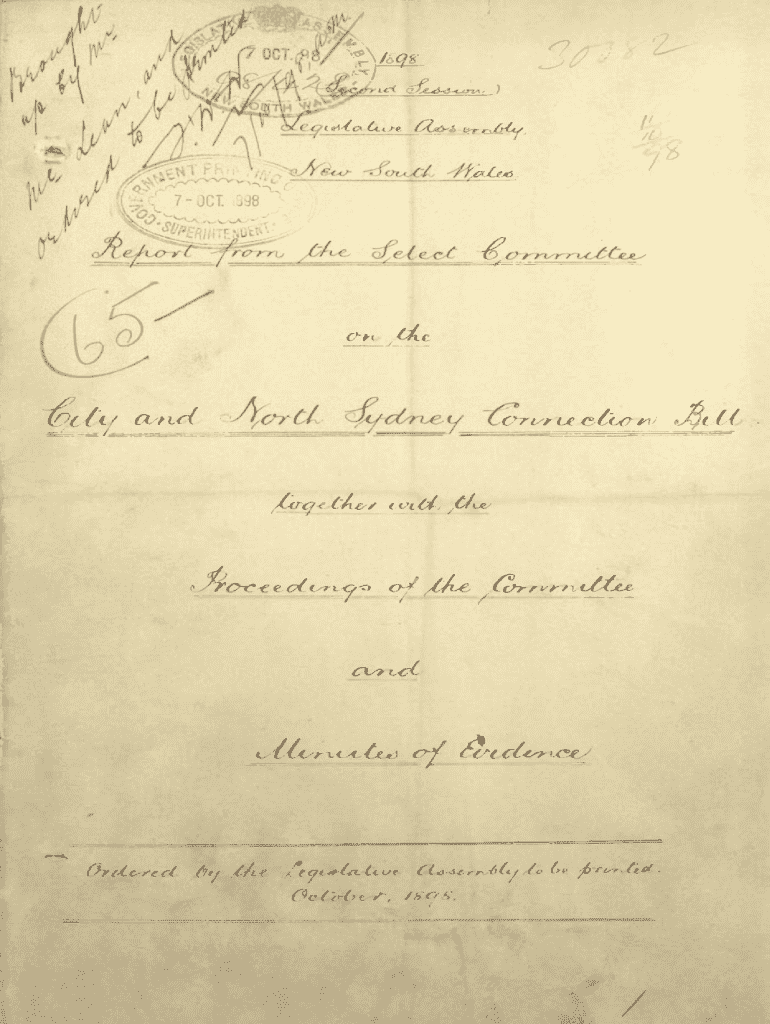 Brought
up by Mr
McLean, and
ordered to be printed
LEGISLATIVE ASSEMBLY
7 OCT. 98
NEW SOUTH WALES
GOVERNMENT PRINTING
7-OCT.1898
SUPERINTENDENT
30382
11/10/98
1898
(Second Session.)
Legislative Assembly.
New South Wales
Report from the Select Committee
65-
on the
City and North Sydney Connection Bill
together with the
Proceedings of the Committee
and
Minutes of Evidence
Ordered by the Legislative Assembly to be printed.
October, 1898.